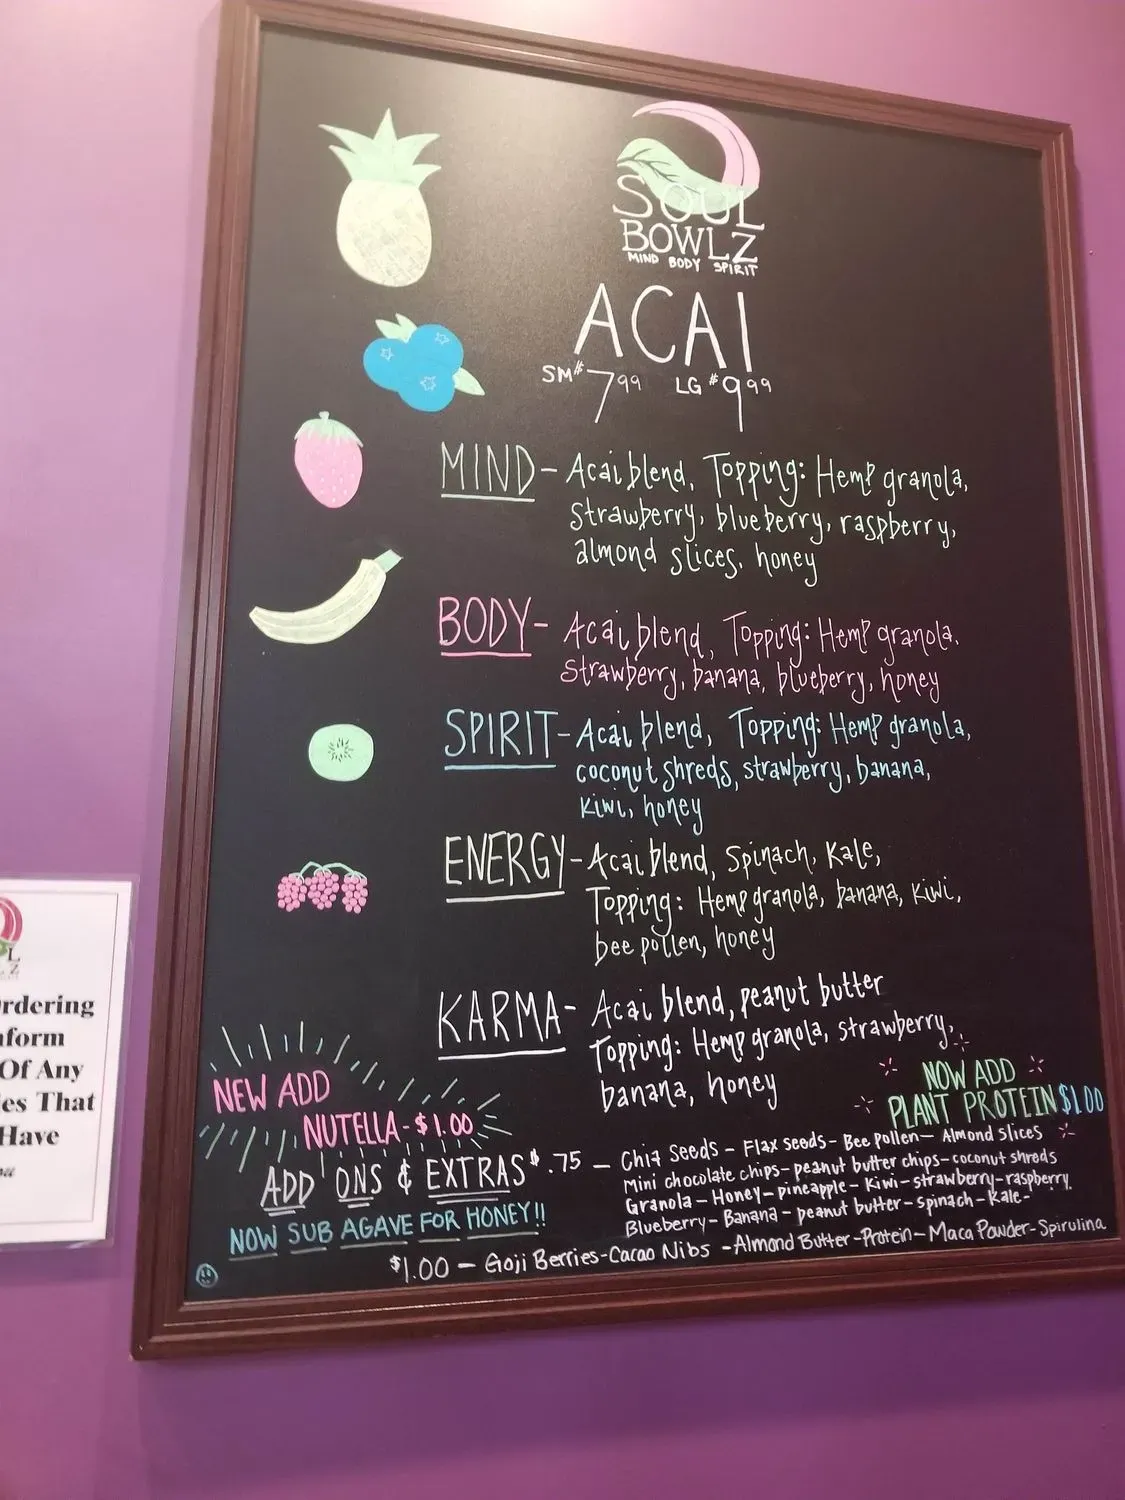 SOUL
BOWLZ
MIND BODY SPIRIT
ACAI
SM $7.99 LG $9.99
MIND- Acai blend, Topping: Hemp granola,
strawberry, blueberry, raspberry,
almond slices, honey
BODY- Acai blend, Topping: Hemp granola,
strawberry, banana, blueberry, honey
SPIRIT- Acai blend, Topping: Hemp granola,
coconut shreds, strawberry, banana,
kiwi, honey
ENERGY- Acai blend, Spinach, Kale,
Topping: Hemp granola, banana, kiwi,
bee pollen, honey
KARMA- Acai blend, peanut butter
Topping: Hemp granola, strawberry,
banana, honey
NEW ADD
NUTELLA-$1.00
NOW ADD
PLANT PROTEIN $1.00
ADD ONS & EXTRAS $.75 - Chia Seeds - Flax seeds - Bee pollen - Almond slices
Mini chocolate chips - peanut butter chips - coconut shreds
Granola - Honey - pineapple - Kiwi - strawberry - raspberry
Blueberry - Banana - peanut butter - spinach - Kale -
NOW SUB AGAVE FOR HONEY!!
$1.00 - Goji Berries - Cacao Nibs - Almond Butter - Protein - Maca Powder - Spirulina
L
Z
rdering
form
Of Any
es That
Have